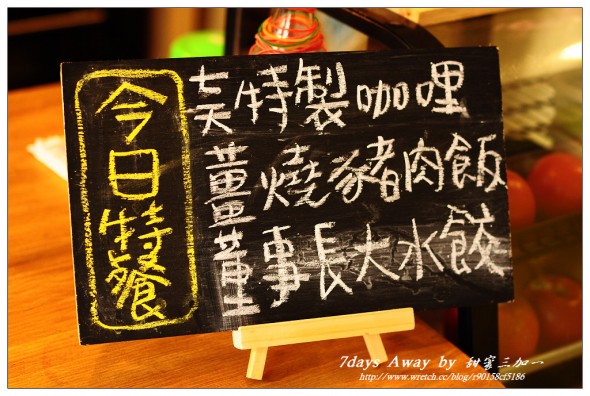 今日特餐
吳特製咖哩
薑燒豬肉飯
董事長大水餃
7days Away by 甜蜜三加一
http://www.wretch.cc/blog/r90158cf5186